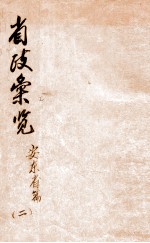 省政彙览
安东省篇
（二）